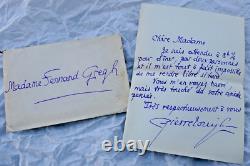 Madame Fernand Gregh
Chère Madame
Je suis attendu à 8h ¼
pour dîner, par deux personnes
et il m'est tout à fait impossible
de me rendre libre ce soir.
Vous m'en voyez navré
mais très touché de votre
Très respectueusement à vous
Pierre Louÿs